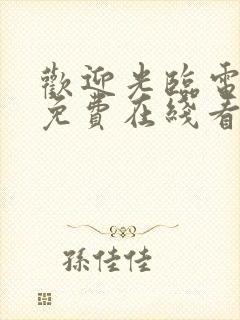 歡迎光臨雷
免費在綫看
孫佳佳